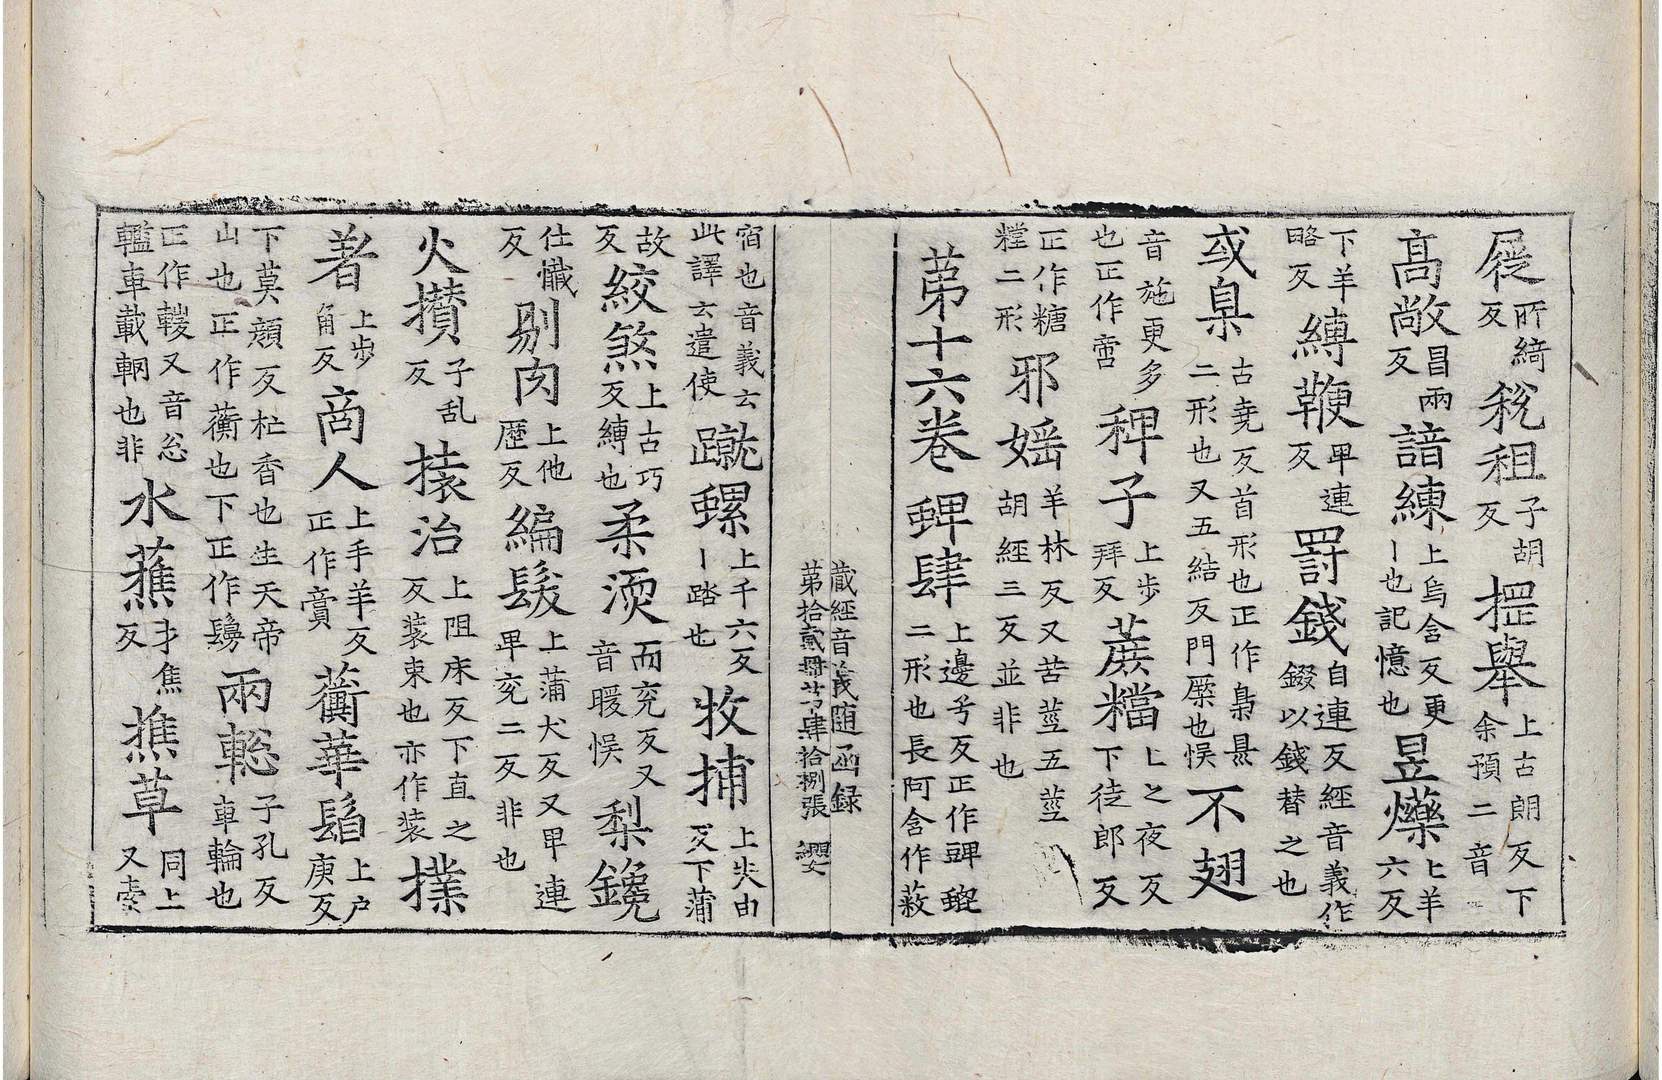 屣所綺反 稅租子胡反 摼舉上古朗反下余預二音
高敞昌兩反 諳練上烏含反更丨也記憶也 昱爍上羊六反
下羊略反 縛鞭卑連反 罸錢自連反經音義作錣以錢替之也
或臬古堯反首形也正作梟㬎二形也又五結反門橜也悮 不翅
音施更多也正作啻 稗子上步拜反 蔗糖上之夜反下徒郎反
正作糖糛二形 邪婬羊林反又苦莖五莖胡經三反並非也
苐十六卷 蜱肆上邊兮反正作䍽螕二形也長阿含作蔱
藏經音義随函録
苐拾貳冊 苐肆拾捌張 纓
宿也音義云此譯云遣使 蹴螺上千六反丨踏也 收捕上失由反下蒲
故反 絞煞上古巧反縛也 柔渜而兖反又音暖悮 犁鑱
仕懴反 剔肉上他歴反 編髮上蒲犬反又卑連卑兖二反非也
火攅子乱反 㨮治上阻床反下直之反装束也亦作装 撲
著上步角反 商人上手羊反正作賞 蘅華䰃上户庚反
下莫顔反杜香也生天帝山也正作蘅也下正作鬘 兩輚子孔反車輪也
正作轗又音忩轞車載輞也非 水蕉才焦反 撨草同上又索